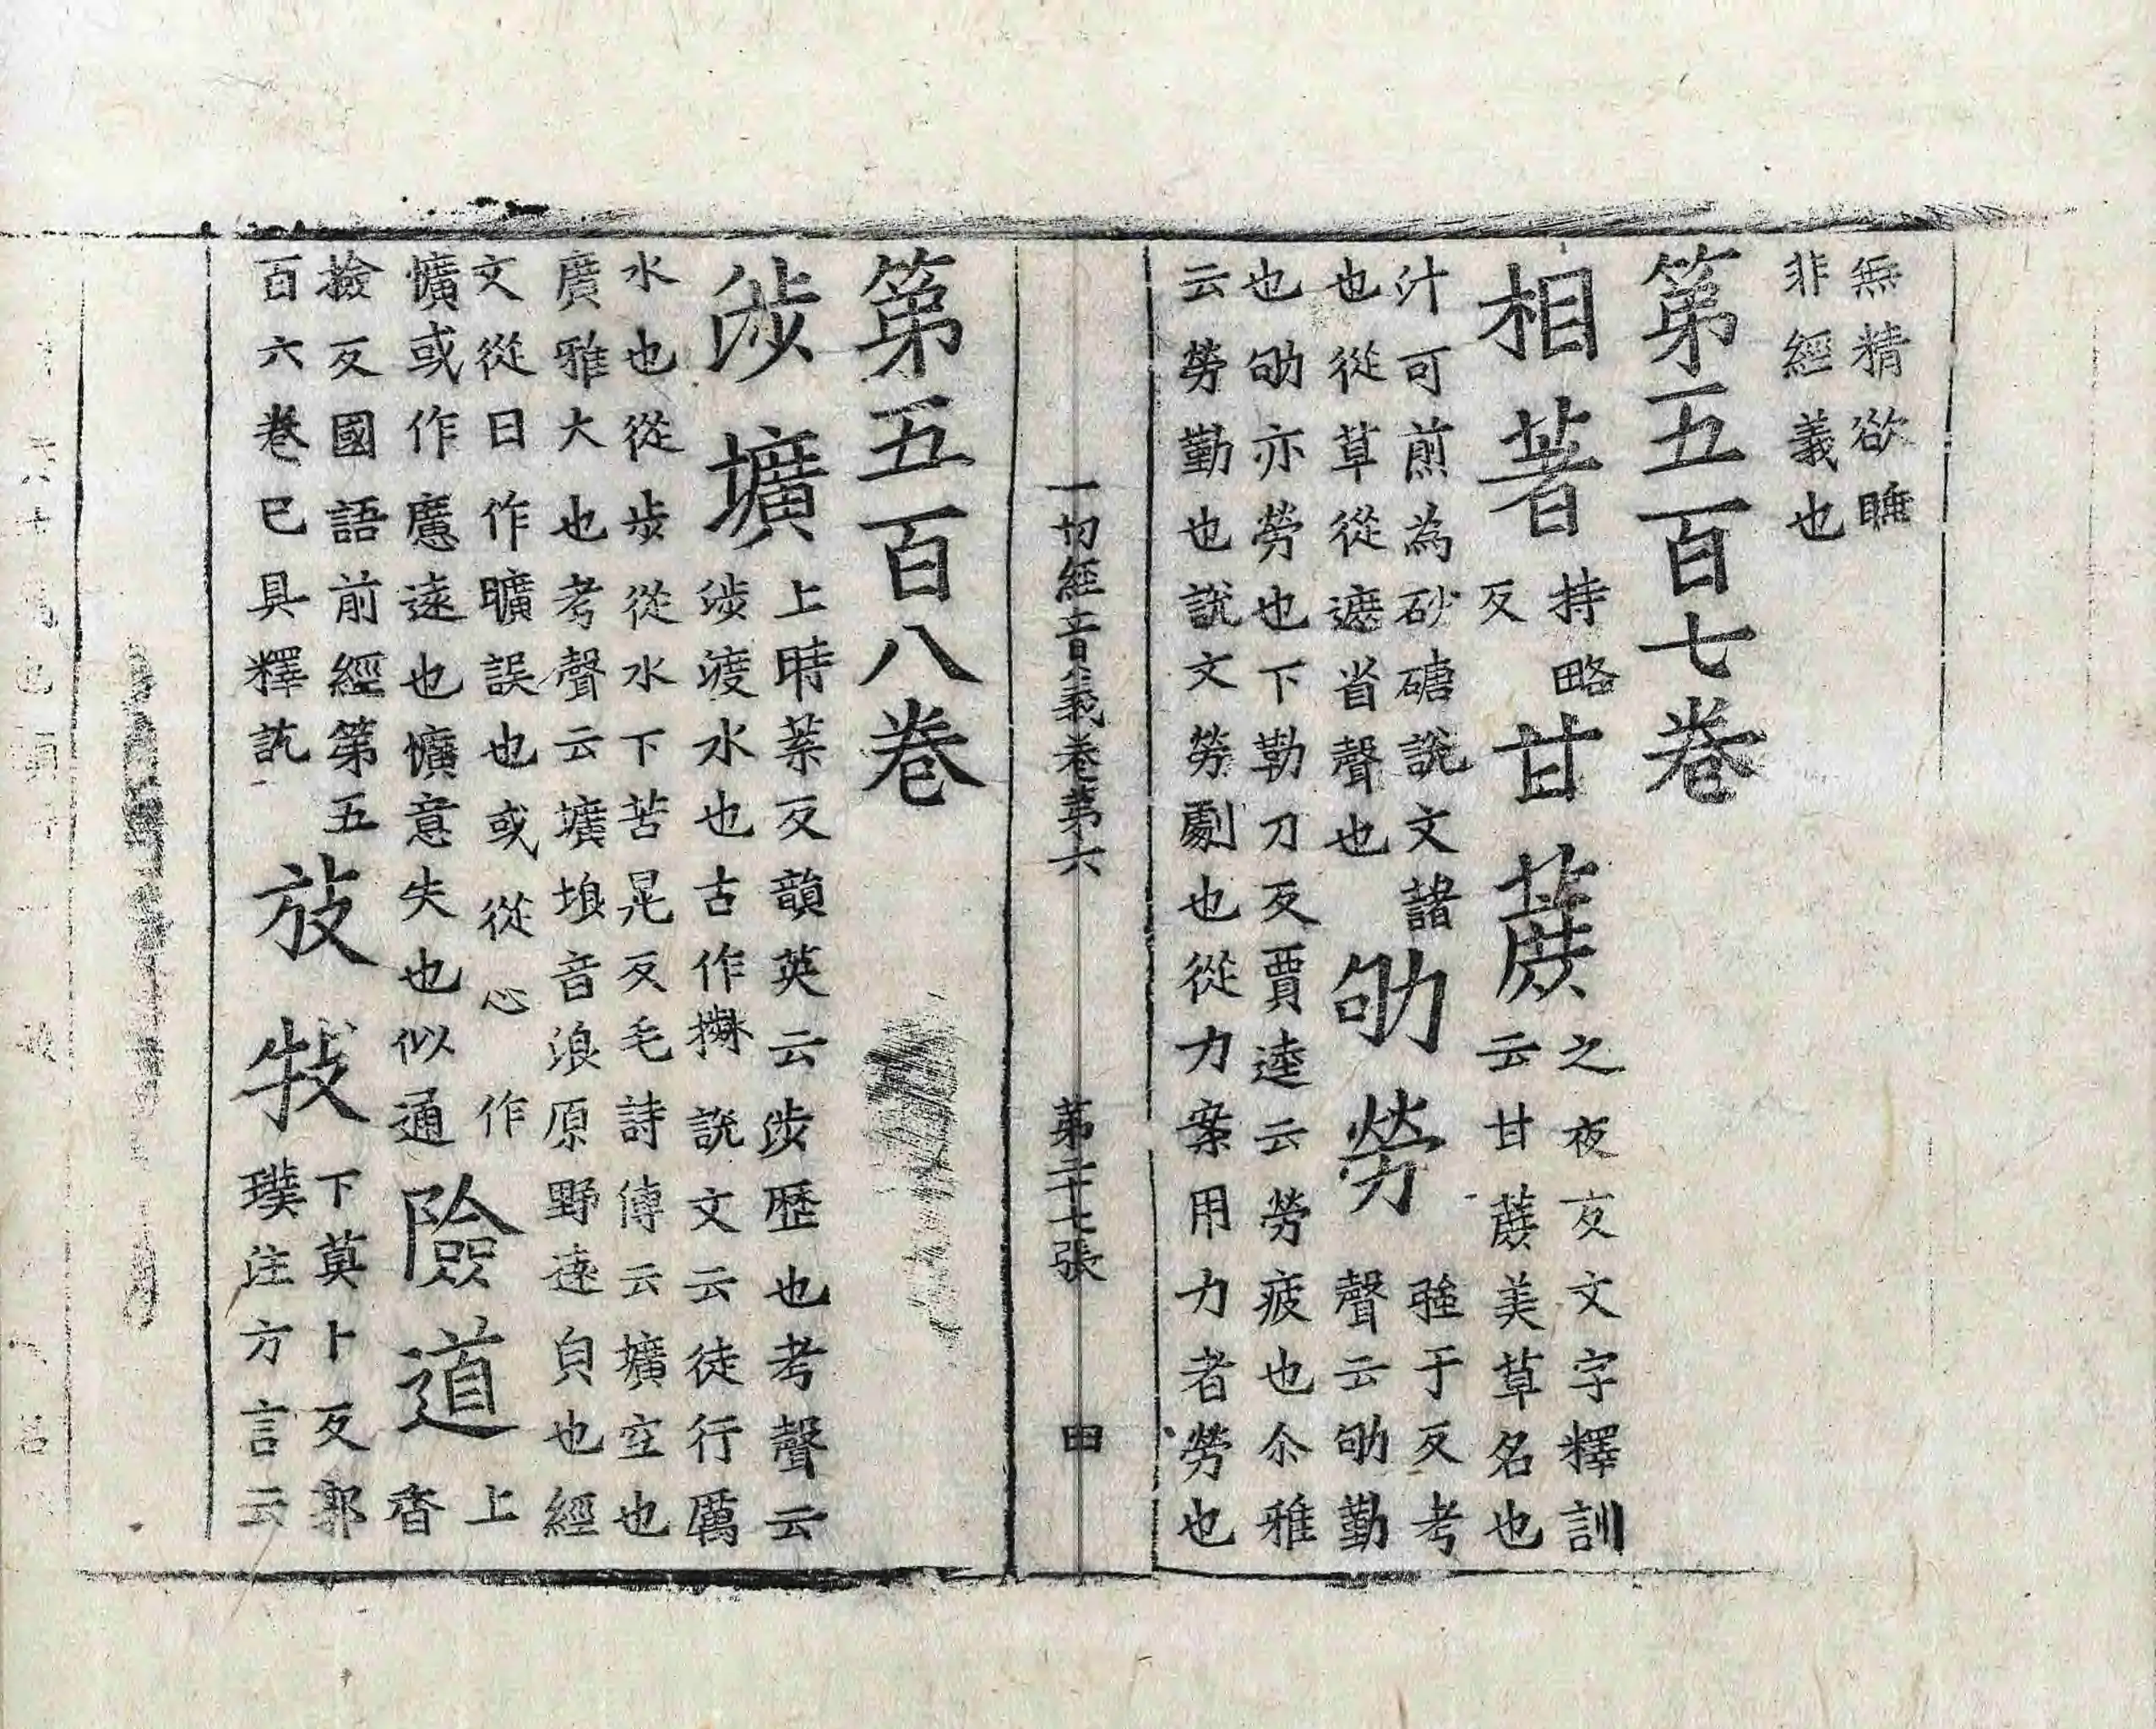 無精欲䁳
非經義也
第五百七卷
相著持略反甘蔗之夜反文字釋訓
云甘蔗美草名也
汁可煎為砂磄說文諸
也從草從遮省聲也
劬勞強于反考
聲云劬勤
也劬亦勞也下勒刀反賈逵云勞疲也尒雅
云勞勤也說文勞劇也從力案用力者勞也
一切經音義卷第六 第二十七張 甲
第五百八卷
涉壙上時葉反韻英云涉歷也考聲云
涉渡水也古作𣻣說文云徒行厲
水也從步從水下苦晃反毛詩傳云壙空也
廣雅大也考聲云壙埌音浪原野遠皃也經
文從日作曠誤也或從心作
懭或作㤮遠也懭意失也似通
險道上香
撿反國語前經第五
百六卷已具釋訖
放牧下莫卜反郭
璞注方言云